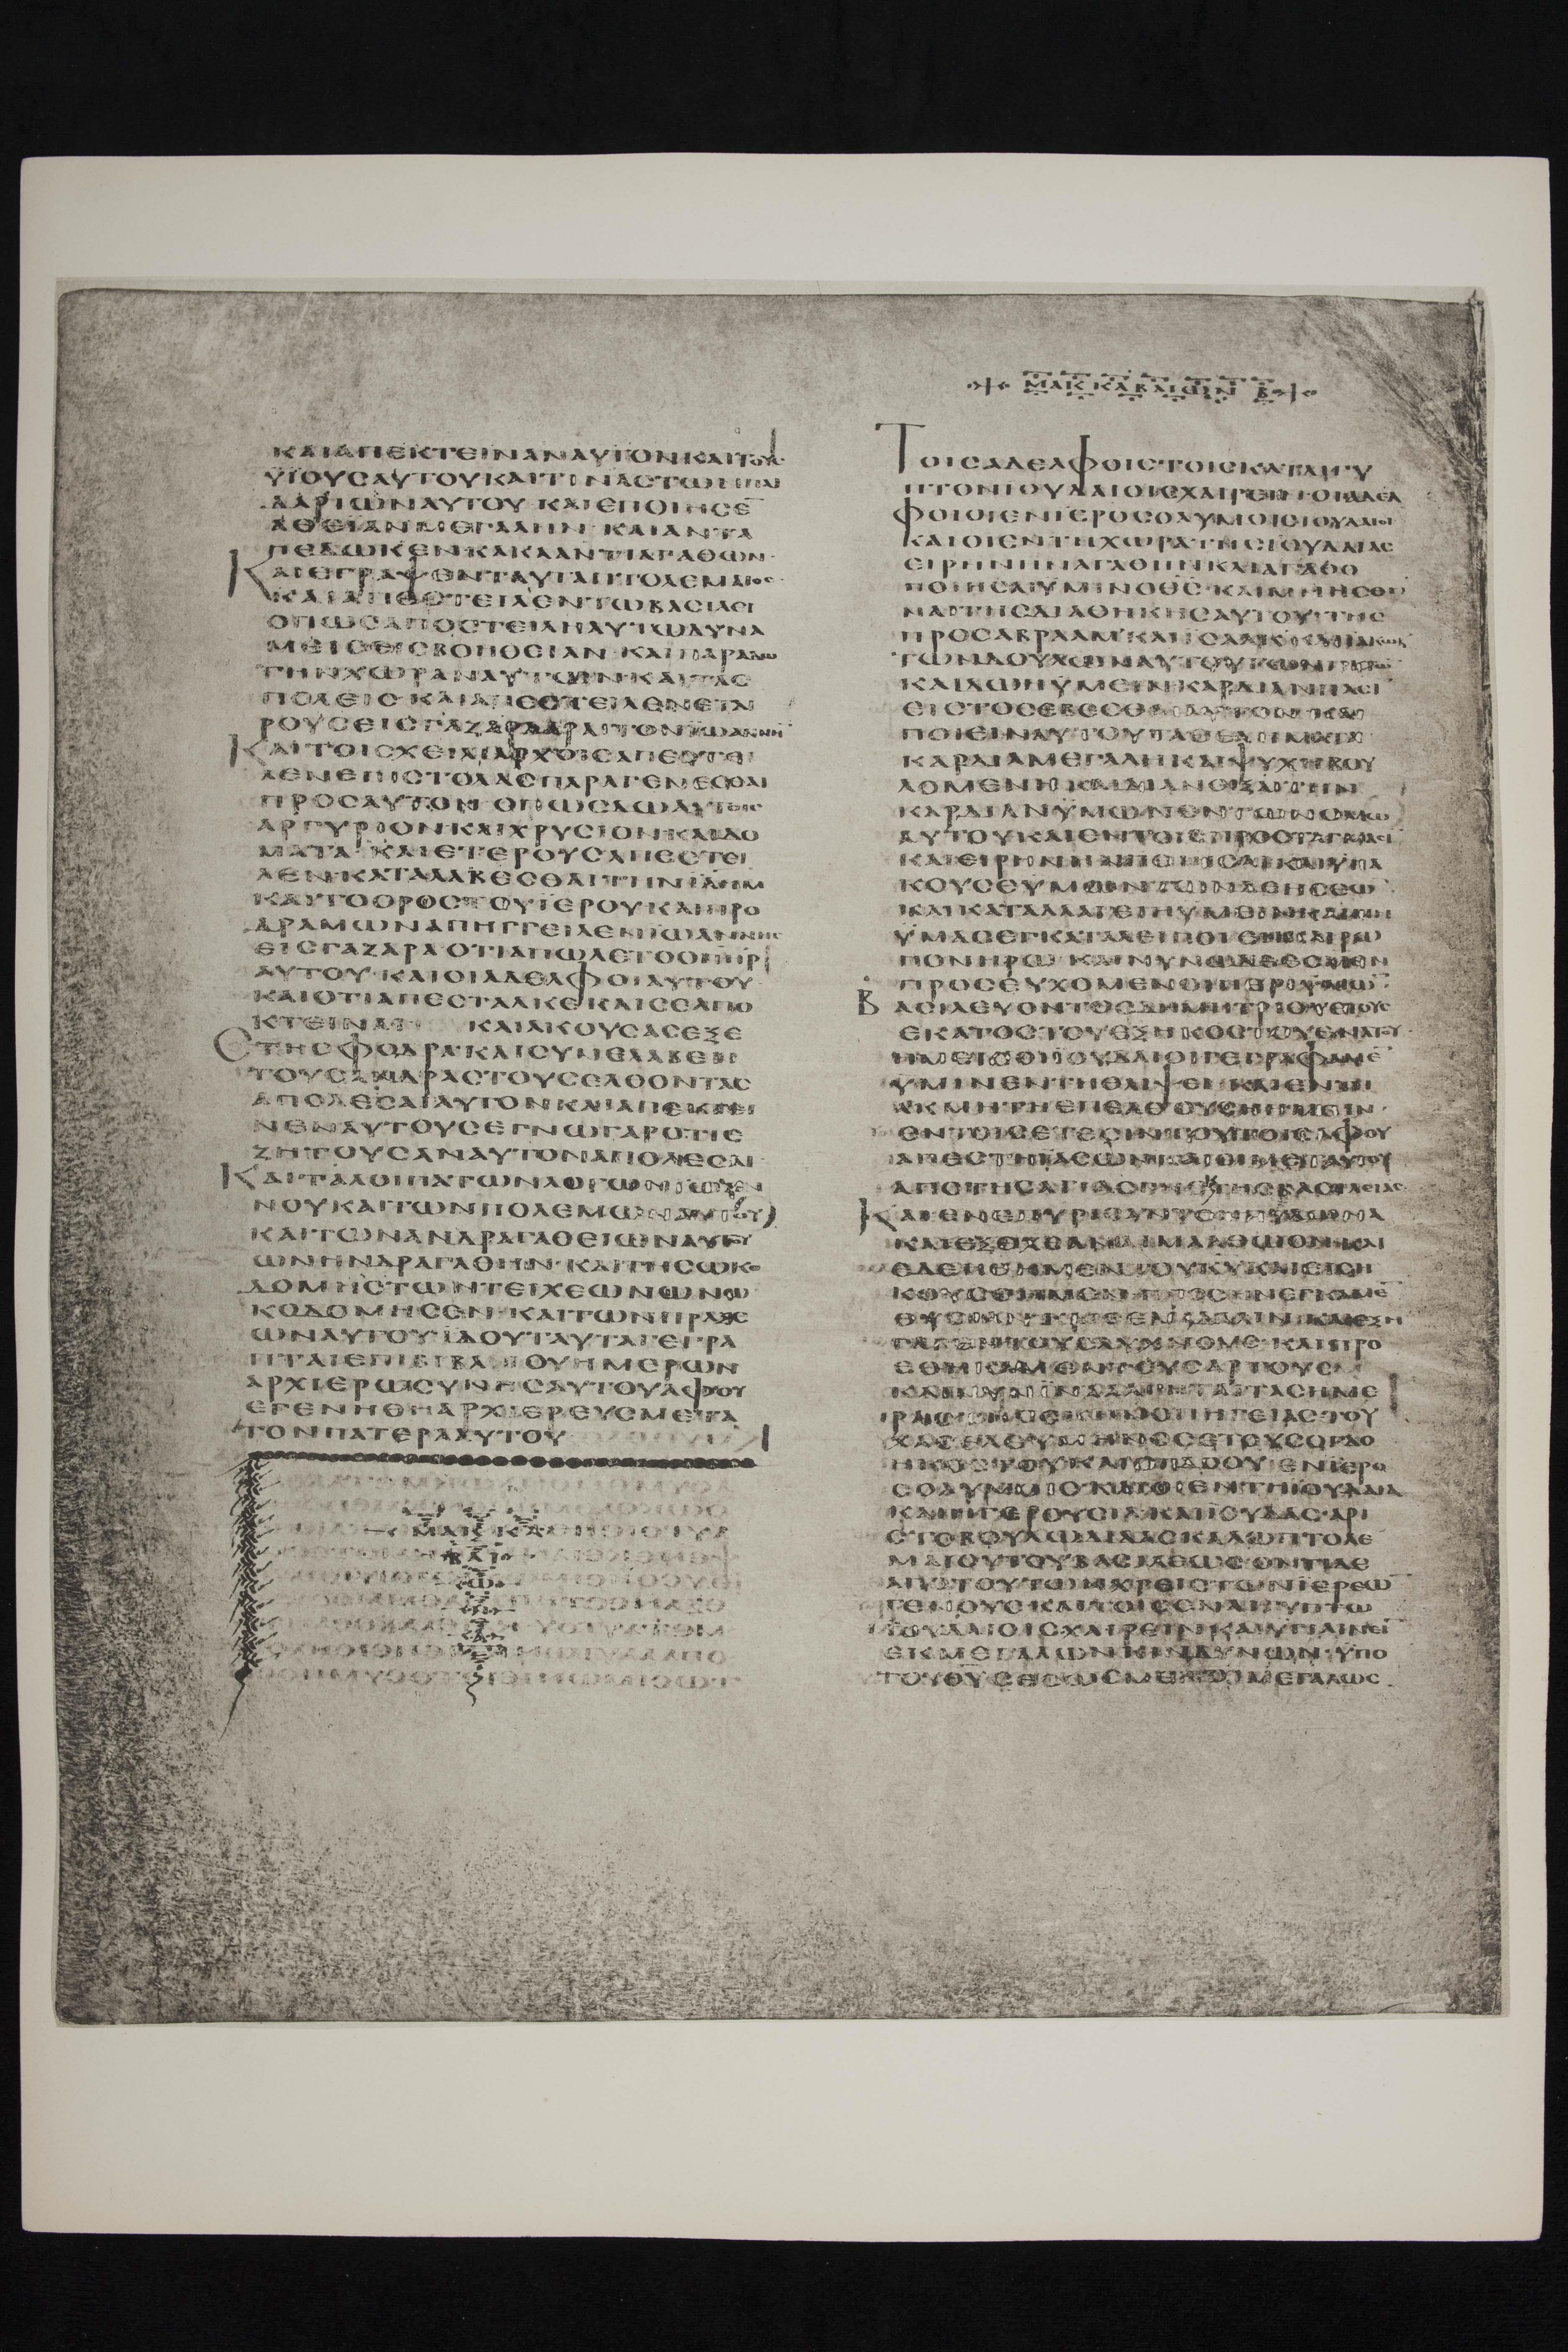 ΚΑΙΑΠΕΚΤΕΙΝΑΝΑΥΤΟΝΚΑΙΤΟΥΣ
ΫΙΟΥϹΑΥΤΟΥΚΑΙΤΙΝΑϹΤΩΝΠΑΙ
ΔΑΡΙΩΝΑΥΤΟΥ·ΚΑΙΕΠΟΙΗϹΕ̅
ΑΘΕϹΙΑΝΜΕΓΑΛΗΝ·ΚΑΙΑΝΤΑ
ΠΕΔΩΚΕΝΚΑΚΑΑΝΤΙΑΓΑΘΩΝ·
ΚΑΙΕΓΡΑΨΕΝΤΑΥΤΑΠΤΟΛΕΜΑΙΟϹ·
ΚΑΙΑΠΕϹΤΕΙΛΕΝΤΩΒΑϹΙΛΕΙ
ΟΠΩϹΑΠΟϹΤΕΙΛΗΑΥΤΩΔΥΝΑ
ΜΕΙϹΕΙϹΒΟΗΘΙΑΝ·ΚΑΙΠΑΡΑΔΩ
ΤΗΝΧΩΡΑΝΑΥΤΩΝ·ΚΑΙΤΑϹ
ΠΟΛΕΙϹ·ΚΑΙΑΠΕϹΤΕΙΛΕΝΕΤΑΙ
ΡΟΥϹΕΙϹΓΑΖΑΡΑΑΡΑΙΤΟΝΪΩΑΝΝΗ
ΚΑΙΤΟΙϹΧΕΙΛΙΑΡΧΟΙϹΑΠΕϹΤΕΙ
ΛΕΝΕΠΙϹΤΟΛΑϹΠΑΡΑΓΕΝΕϹΘΑΙ
ΠΡΟϹΑΥΤΟΝ·ΟΠΩϹΔΩΑΥΤΟΙϹ
ΑΡΓΥΡΙΟΝΚΑΙΧΡΥϹΙΟΝΚΑΙΔΟ
ΜΑΤΑ·ΚΑΙΕΤΕΡΟΥϹΑΠΕϹΤΕΙ
ΛΕΝΚΑΤΑΛΑΒΕϹΘΑΙΤΗΝΙΛΗΜ
ΚΑΙΤΟΟΡΟϹΤΟΥΪΕΡΟΥΚΑΙΠΡΟ
ΔΡΑΜΩΝΑΠΗΓΓΕΙΛΕΝΪΩΑΝΝΗ
ΕΙϹΓΑΖΑΡΑΟΤΙΑΠΩΛΕΤΟΟΠΗΡ
ΑΥΤΟΥ·ΚΑΙΟΙΑΔΕΛΦΟΙΑΥΤΟΥ
ΚΑΙΟΤΙΑΠΕϹΤΑΛΚΕΚΑΙϹΕΑΠΟ
ΚΤΕΙΝΑΙ· ΚΑΙΑΚΟΥϹΑϹΕΞΕ
ϹΤΗϹΦΟΔΡΑ·ΚΑΙϹΥΝΕΛΑΒΕΝ
ΤΟΥϹΑΝΔΡΑϹΤΟΥϹΕΛΘΟΝΤΑϹ
ΑΠΟΛΕϹΑΙΑΥΤΟΝΚΑΙΑΠΕΚΤΕΙ
ΝΕΝΑΥΤΟΥϹΕΓΝΩΓΑΡΟΤΙΕ
ΖΗΤΟΥϹΑΝΑΥΤΟΝΑΠΟΛΕϹΑΙ
ΚΑΙΤΑΛΟΙΠΑΤΩΝΛΟΓΩΝΪΩΑΝ
ΝΟΥΚΑΙΤΩΝΠΟΛΕΜΩΝΑΥΤΟΥ
ΚΑΙΤΩΝΑΝΔΡΑΓΑΘΕΙΩΝΑΥΤΟΥ
ΩΝΗΝΔΡΑΓΑΘΗϹΕΝ·ΚΑΙΤΗϹΟΙΚΟ
ΔΟΜΗϹΤΩΝΤΕΙΧΕΩΝΩΝΩ
ΚΟΔΟΜΗϹΕΝ·ΚΑΙΤΩΝΠΡΑΞΕ
ΩΝΑΥΤΟΥΪΔΟΥΤΑΥΤΑΓΕΓΡΑ
ΠΤΑΙΕΠΙΒΙΒΛΙΟΥΗΜΕΡΩΝ
ΑΡΧΙΕΡΩϹΥΝΗϹΑΥΤΟΥΑΦΟΥ
ΕΓΕΝΗΘΗΑΡΧΙΕΡΕΥϹΜΕΤΑ
ΤΟΝΠΑΤΕΡΑΑΥΤΟΥ
ΜΑΚΚΑ
ΒΑΙ
Ω
ΜΑΚΚΑΒΑΙΩΝ Β
ΤΟΙϹΑΔΕΛΦΟΙϹΤΟΙϹΚΑΤΑΙΓΥ
ΠΤΟΝΪΟΥΔΑΙΟΙϹΧΑΙΡΕΙΝ·ΟΙΑΔΕΛ
ΦΟΙΟΙΕΝΪΕΡΟϹΟΛΥΜΟΙϹΙΟΥΔΑΙΟΙ
ΚΑΙΟΙΕΝΤΗΧΩΡΑΤΗϹΙΟΥΔΑΙΑϹ
ΕΙΡΗΝΗΝΑΓΑΘΗΝΚΑΙΑΓΑΘΟ
ΠΟΙΗϹΑΙΫΜΙΝΟΘϹ·ΚΑΙΜΝΗϹΘΕΙ
ΗΤΗϹΔΙΑΘΗΚΗϹΑΥΤΟΥΤΗϹ
ΠΡΟϹΑΒΡΑΑΜ·ΚΑΙΪϹΑΑΚ·ΚΑΙΪΑΚΩΒ
ΤΩΝΔΟΥΛΩΝΑΥΤΟΥΤΩΝΠΙϹΤΩ̅
ΚΑΙΔΩΗΫΜΕΙΝΚΑΡΔΙΑΝΠΑϹΙ
ΕΙϹΤΟϹΕΒΕϹΘΑΙΑΥΤΟΝΚΑΙ
ΠΟΙΕΙΝΑΥΤΟΥΤΑΘΕΛΗΜΑΤΑ
ΚΑΡΔΙΑΜΕΓΑΛΗΚΑΙΨΥΧΗΒΟΥ
ΛΟΜΕΝΗ·ΚΑΙΔΙΑΝΟΙΞΑΙΤΗΝ
ΚΑΡΔΙΑΝΫΜΩΝΕΝΤΩΝΟΜΩ
ΑΥΤΟΥΚΑΙΕΝΤΟΙϹΠΡΟϹΤΑΓΜΑϹΙ
ΚΑΙΕΙΡΗΝΗΝΠΟΙΗϹΑΙΚΑΙΕΠΑ
ΚΟΥϹΕΥΜΩΝΤΩΝΔΕΗϹΕΩ̅
ΚΑΙΚΑΤΑΛΛΑΓΕΙΗΫΜΕΙΝΚΑΙΜΗ
ΫΜΑϹΕΓΚΑΤΑΛΕΙΠΟΙΕΝΚΑΙΡΩ
ΠΟΝΗΡΩ·ΚΑΙΝΥΝΩΔΕΕϹΜΕΝ
ΠΡΟϹΕΥΧΟΜΕΝΟΙΠΕΡΙΫΜΩ̅·
ΒΑϹΙΛΕΥΟΝΤΟϹΔΗΜΗΤΡΙΟΥΕΤΟΥϹ
ΕΚΑΤΟϹΤΟΥΕΞΗΚΟϹΤΟΥΕΝΑΤΟΥ
ΗΜΕΙϹΟΙΪΟΥΔΑΙΟΙΓΕΓΡΑΦΑΜΕ̅
ΫΜΙΝΕΝΤΗΘΛΙΨΕΙ·ΚΑΙΕΝΤΗ
ΑΚΜΗΤΗΕΠΕΛΘΟΥϹΗΗΜΕΙΝ·
ΕΝΤΟΙϹΕΤΕϹΙΝΤΟΥΤΟΙϹΑΦΟΥ
ΑΠΕϹΤΗΪΑϹΩΝΚΑΙΟΙΜΕΤΑΥΤΟΥ
ΑΠΟΤΗϹΑΓΙΑϹΓΗϹΚΑΙΤΗϹΒΑϹΙΛΕΙΑϹ
ΚΑΙΕΝΕΠΥΡΙϹΑΝΤΟΝΠΥΛΩΝΑ
ΚΑΙΕΞΕΧΕΑΝΑΙΜΑΑΘΩΟΝ·ΚΑΙ
ΕΔΕΗΘΗΜΕΝΤΟΥΚΥΚΑΙΕΙϹΗ
ΚΟΥϹΘΗΜΕΝ·ΚΑΙΠΡΟϹΗΝΕΓΚΑΜΕ̅
ΘΥϹΙΑΝΚΑΙϹΕΜΙΔΑΛΙΝ·ΚΑΙΕΞΗ
ΨΑΜΕΝΤΟΥϹΛΥΧΝΟΥϹ·ΚΑΙΠΡΟ
ΕΘΗΚΑΜΕΝΤΟΥϹΑΡΤΟΥϹ·
ΚΑΙΝΥΝΪΝΑΑΓΗΤΕΤΑϹΗΜΕ
ΡΑϹΤΗϹϹΚΗΝΟΠΗΓΕΙΑϹΤΟΥ
ΧΑϹΕΛΕΥΜΗΝΟϹΕΤΟΥϹΟΓΔΟ
ΗΚΟϹΤΟΥΚΑΙΟΓΔΟΟΥ·ΕΝΙΕΡΟ
ϹΟΛΥΜΟΙϹΚΑΙΟΙΕΝΤΗΪΟΥΔΑΙΑ
ΚΑΙΗΓΕΡΟΥϹΙΑ·ΚΑΙΪΟΥΔΑϹ·ΑΡΙ
ϹΤΟΒΟΥΛΩΔΙΔΑϹΚΑΛΩΠΤΟΛΕ
ΜΑΙΟΥΤΟΥΒΑϹΙΛΕΩϹ·ΟΝΤΙΔΕ
ΑΠΟΤΟΥΤΩΝΧΡΕΙϹΤΩΝΪΕΡΕΩ̅
ΓΕΝΟΥϹ·ΚΑΙΤΟΙϹΕΝΑΙΓΥΠΤΩ
ΪΟΥΔΑΙΟΙϹΧΑΙΡΕΙΝ·ΚΑΙΥΓΙΑΙΝΕΙ̅
ΕΚΜΕΓΑΛΩΝΚΙΝΔΥΝΩΝ·ΫΠΟ
ΤΟΥΘΥϹΕϹΩϹΜΕΝΟΙΜΕΓΑΛΩϹ